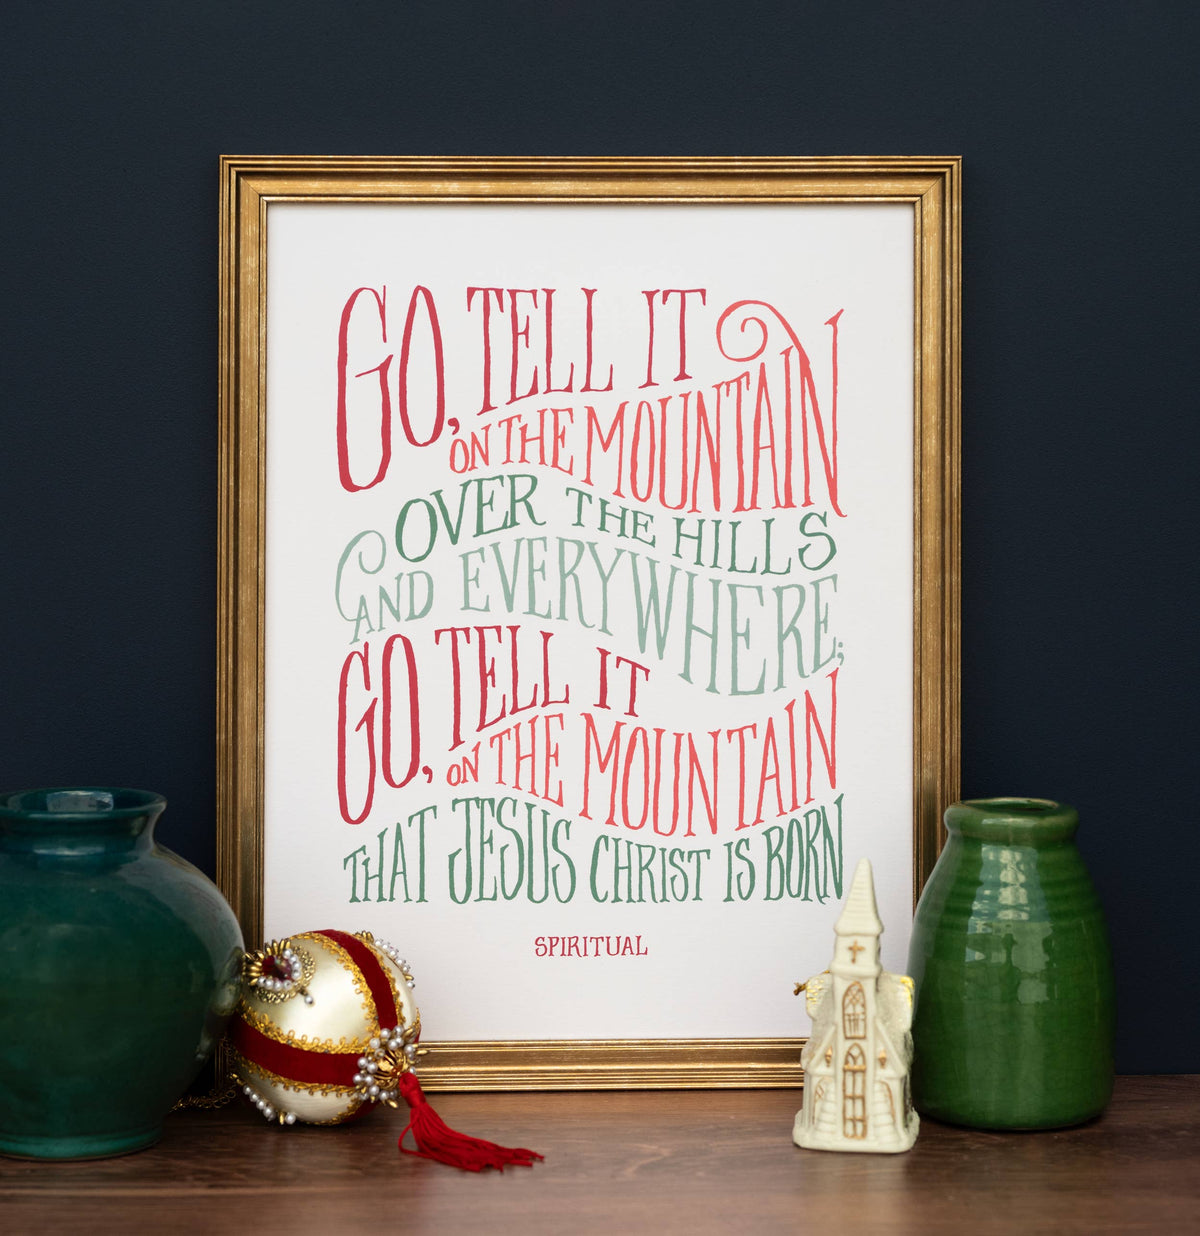 GO, TELL IT
ON THE MOUNTAIN
OVER THE HILLS
AND EVERYWHERE;
GO, TELL IT
ON THE MOUNTAIN
THAT JESUS CHRIST IS BORN
SPIRITUAL